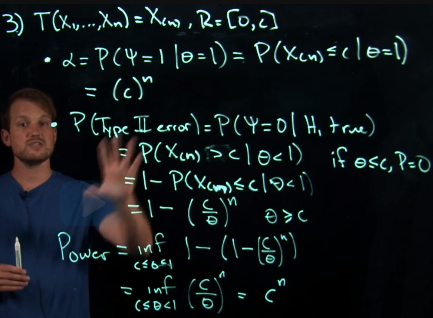 3) T(X₁,...,Xₙ) = X₍ₙ₎, R = [0, c]
• α = P(Ψ = 1 | θ = 1) = P(X₍ₙ₎ ≤ c | θ = 1)
= (c)ⁿ
• P(Type II error) = P(Ψ = 0 | H, true)
= P(X₍ₙ₎ > c | θ < 1) if θ ≤ c, P = 0
= 1 - P(X₍ₙ₎ ≤ c | θ < 1)
= 1 - (c/θ)ⁿ θ ≥ c
Power = inf_{c≤θ≤1} 1 - (1 - (c/θ)ⁿ)
= inf_{c≤θ<1} (c/θ)ⁿ = cⁿ